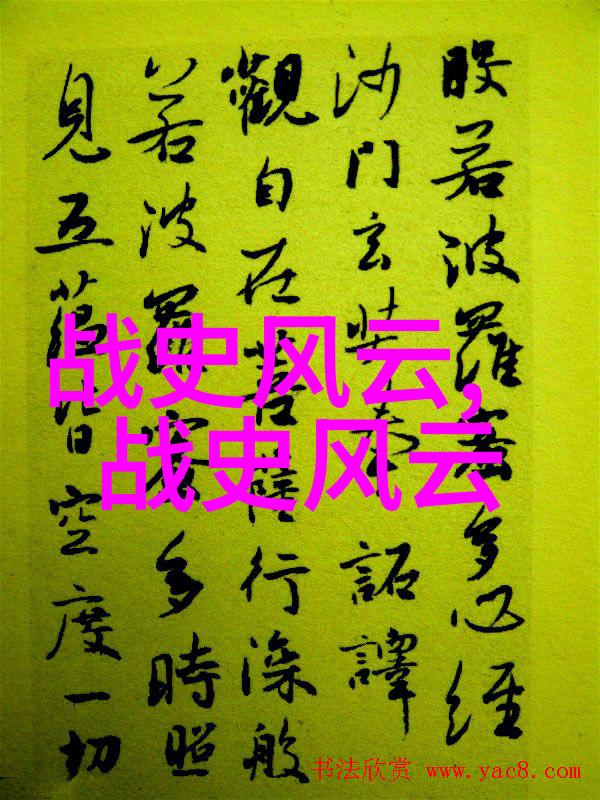 般若波羅蜜多心經
沙門玄奘奉詔譯
觀自在菩薩行深般
若波羅蜜多時照
見五蘊皆空度一切
战史风云,
战史风云
书法欣赏 www.yac8.com